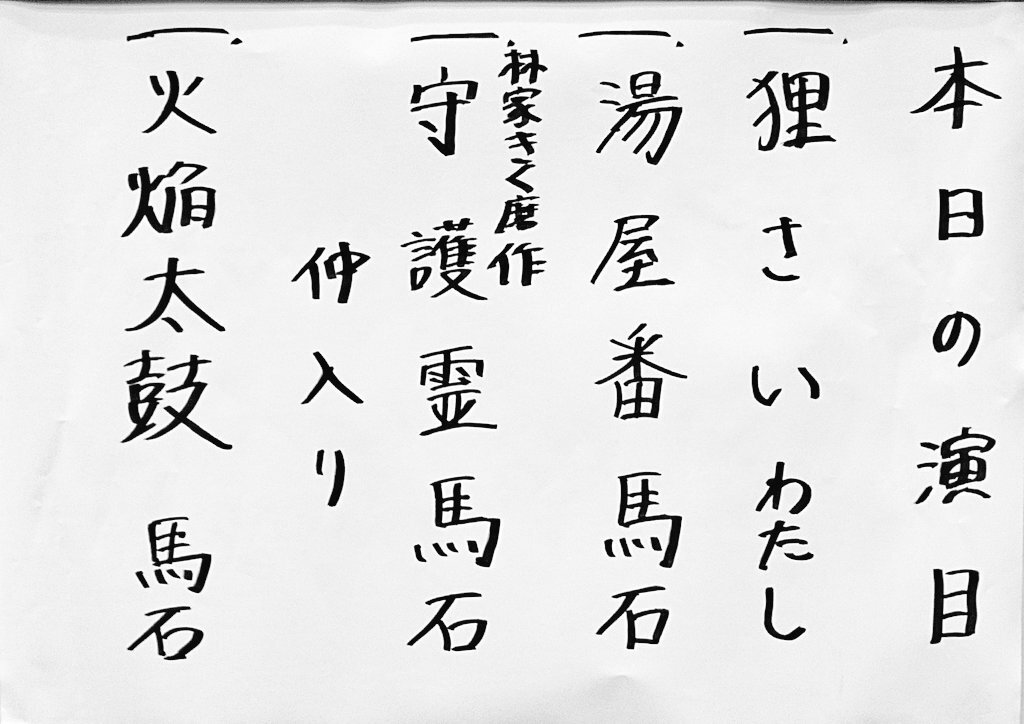 本日の演目
一、狸さい わたし
一、湯屋番 馬石
林家きく麿作
一、守護霊 馬石
仲入り
一、火焔太鼓 馬石